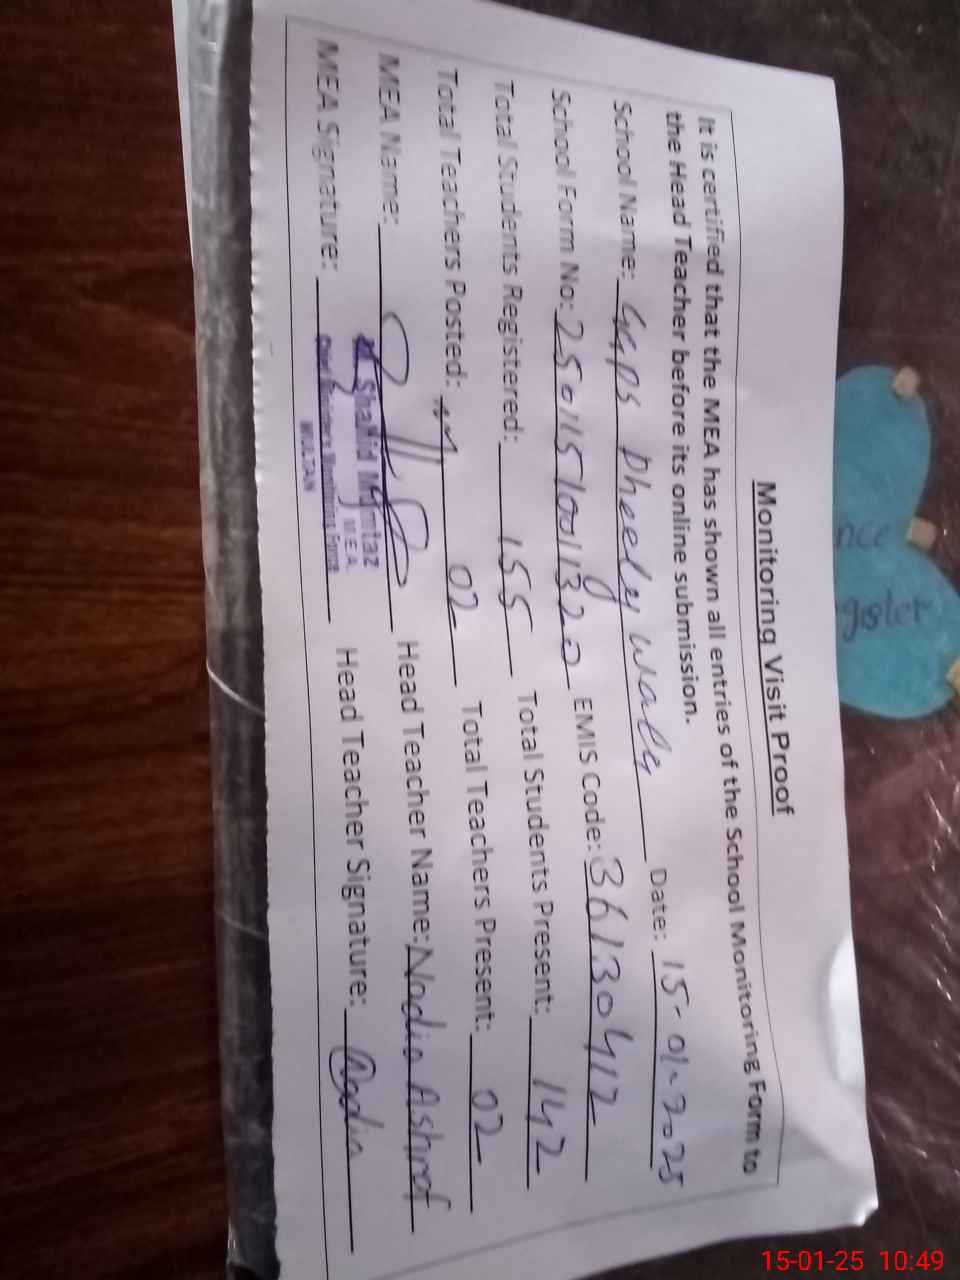 Monitoring Visit Proof
It is certified that the MEA has shown all entries of the School Monitoring Form to
the Head Teacher before its online submission.
School Name: GGPS Pheely wala Date: 15-01-2025
School Form No: 2501151001320 EMIS Code: 36130412
Total Students Registered: 155 Total Students Present: 142
Total Teachers Posted: 02 Total Teachers Present: 02
MEA Name: Head Teacher Name: Nadia Ashraf
MEA Signature: Head Teacher Signature: Nadia
Shahid Mumtaz
M.E.A.
Monitoring Force
MULTAN
nce
gister
15-01-25 10:49